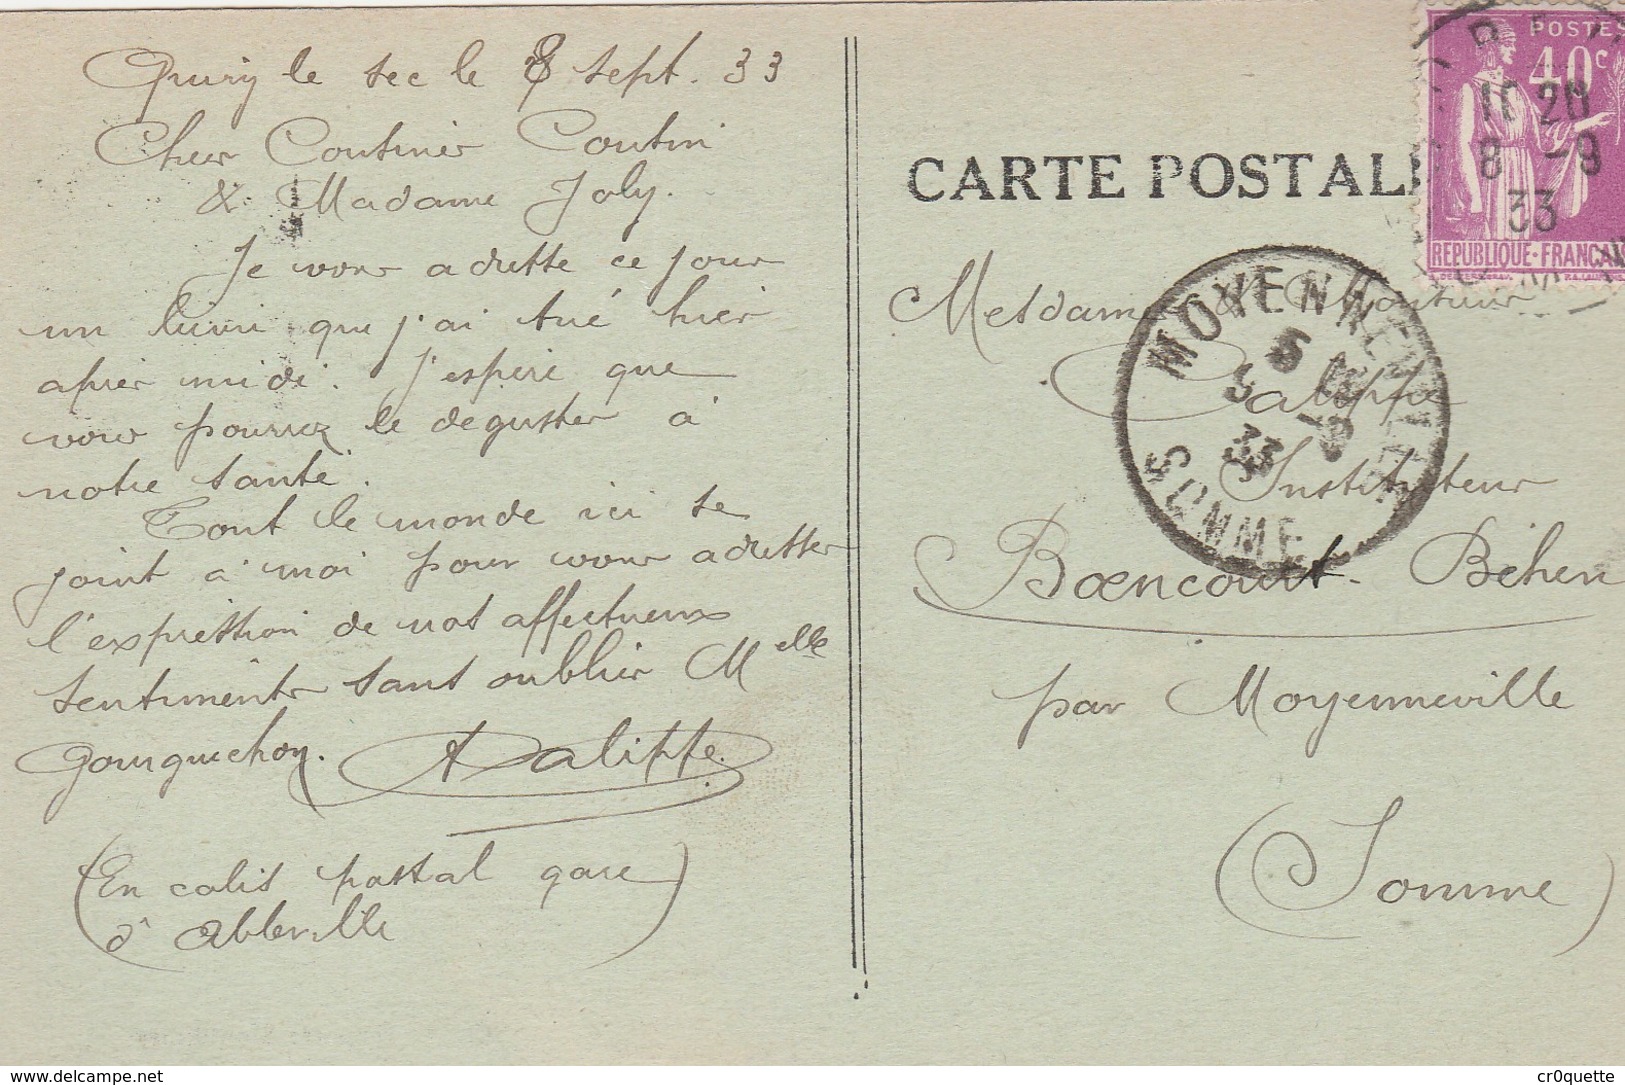 Quiry le sec le 8 sept. 33
Cher Cousines Cousin
& Madame Joly.
Je vous adresse ce jour
un lièvre que j'ai tué hier
après midi. J'espère que
vous pourrez le deguster à
notre santé.
Tout le monde ici se
joint à moi pour vous adresser
l'expression de nos affectueux
sentiments sans oublier Melle
Gourguechon. A Dalippe
(En colis postal gare
d'Abbeville)
CARTE POSTALE
POSTES
40c
REPUBLIQUE-FRANCAISE
11 20
8 -9
33
MOYENNEVILLE
33
SOMME
Mesdames & Monsieur
Dalippe
Instituteur
Boencourt-Béhen
par Moyenneville
(Somme)
cr0quette
www.delcampe.net